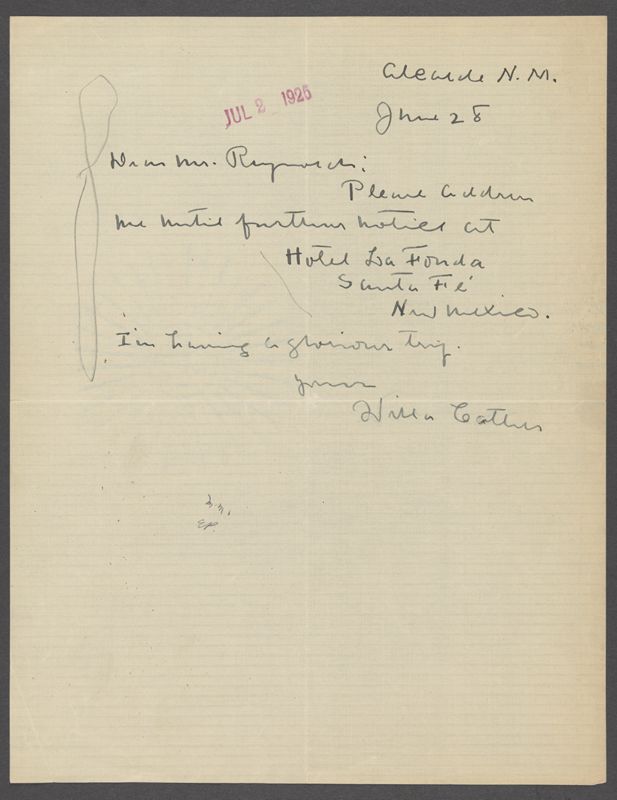 Alcalde N. M.
JUL 2 1925
June 28
Dear Mr. Reynolds:
Please address
me until further notice at
Hotel La Fonda
Santa Fé
New Mexico.
I'm having a glorious trip.
Yours
Willa Cather